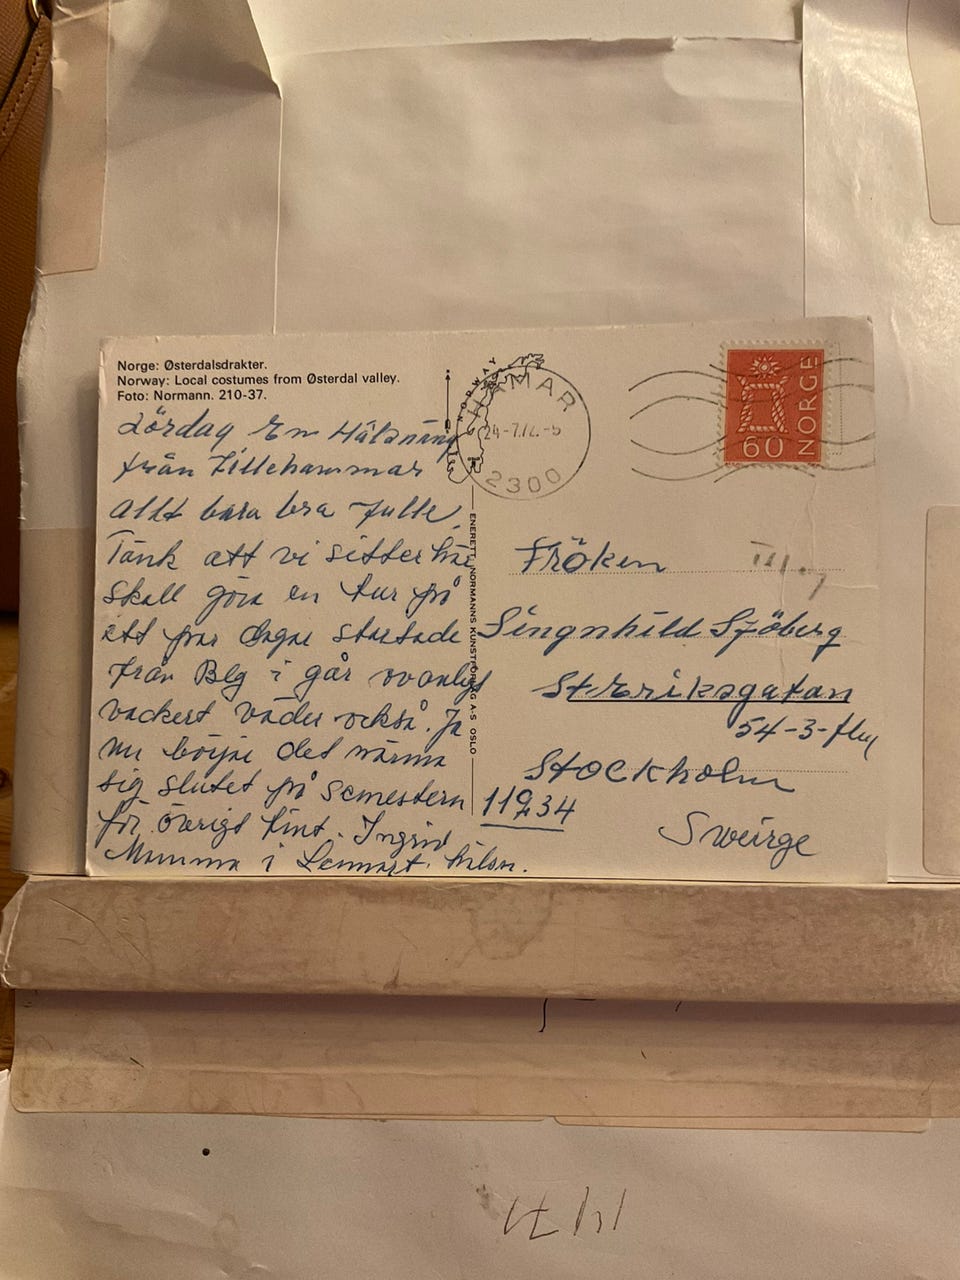 Norge: Østerdalsdrakter.
Norway: Local costumes from Østerdal valley.
Foto: Normann. 210-37.
Lördag En Hälsning
från Lillehammar
allt bara bra Julle.
Tänk att vi sitter här
skall göra en tur på
ett par dagar startade
från Blg i går ovanligt
vackert väder också. Ja
nu börjar det närma
sig slutet på semestern
för övrigt fint. Ingrid
Mumma i Lennart. hälsn.
NORWAY
HAMAR
24-7.72.-5
2300
NORGE
60
ENERETT: NORMANNS KUNSTFORLAG A-S OSLO
Fröken
Singnhild Sjöberg
St Eriksgatan
54-3-
Stockholm
11234
Sweirge